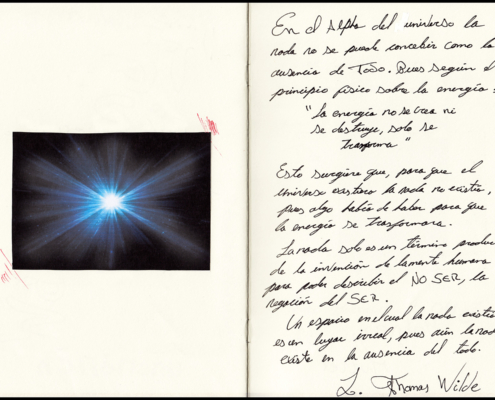 En el Alpha del universo la
nada no se puede concebir como la
ausencia de TODO. Pues según el
principio físico sobre la energía:
"la energía no se crea ni
se destruye, solo se
trasforma"
Esto sugiere que, para que el
universo existiera la nada no existía,
pues algo había de haber para que
la energía se trasformara.
La nada solo es un término producto
de la invención de la mente humana
para poder describir el NO SER, la
negación del SER.
Un espacio en el cual la nada existiera
es un lugar irreal, pues aún la nada
existe en la ausencia del todo.
L. Thomas Wilde